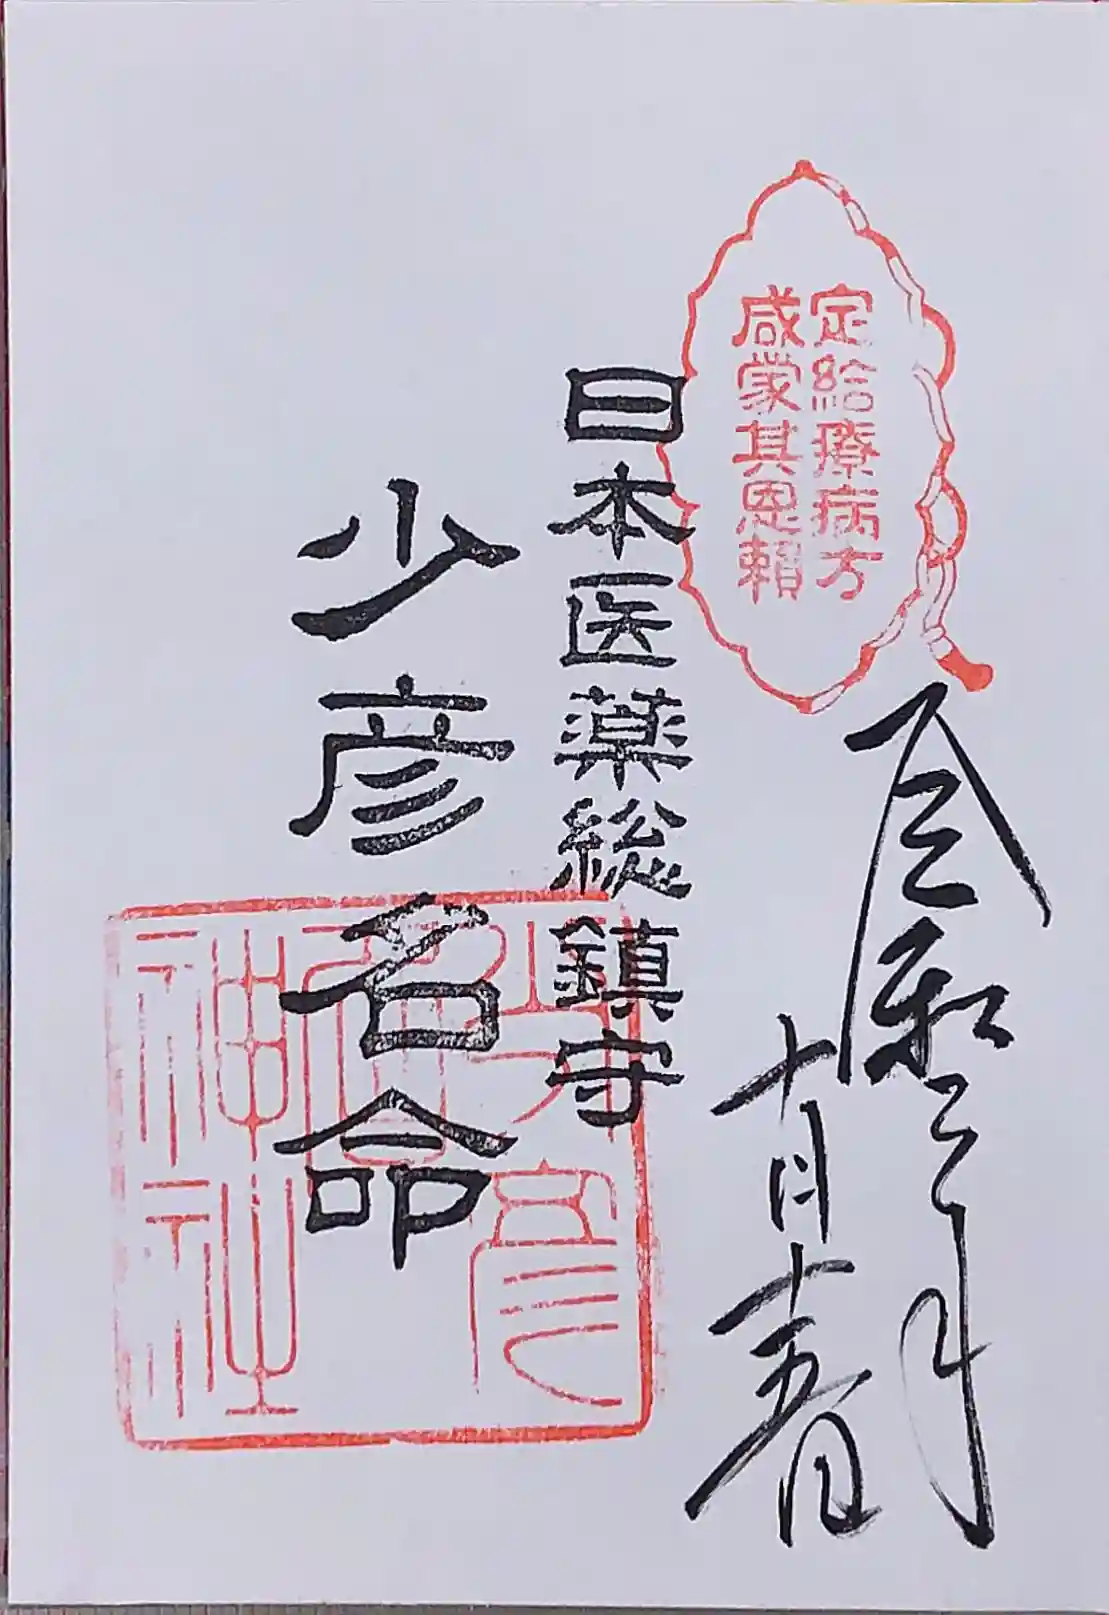 定給療病方
咸蒙其恩頼
令和二年
十月十五日
日本医薬総鎮守
少彦名命
少彦
名
神社